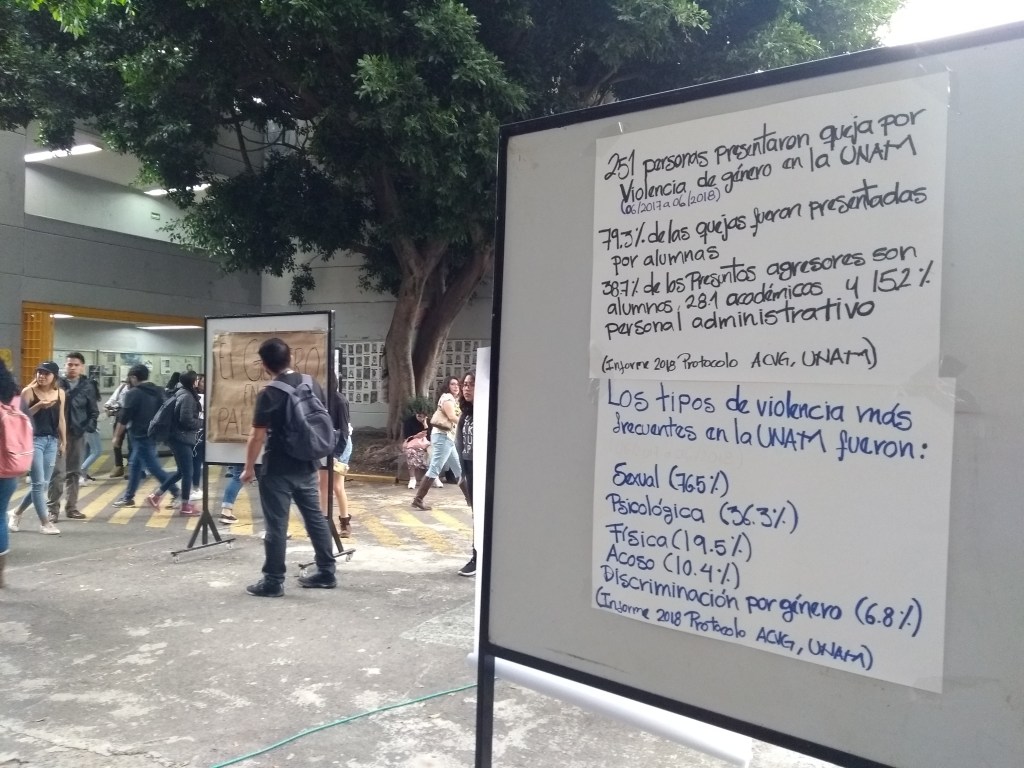 251 personas presentaron queja por
Violencia de género en la UNAM
(06/2017 a 06/2018)
79.3% de las quejas fueron presentadas
por alumnas
38.7% de los Presuntos agresores son
alumnos, 28.1 académicos y 15.2%
personal administrativo
(Informe 2018 Protocolo ACVG, UNAM)
Los tipos de violencia más
frecuentes en la UNAM fueron:
Sexual (76.5%)
Psicológica (36.3%)
Física (19.5%)
Acoso (10.4%)
Discriminación por género (6.8%)
(Informe 2018 Protocolo ACVG, UNAM)